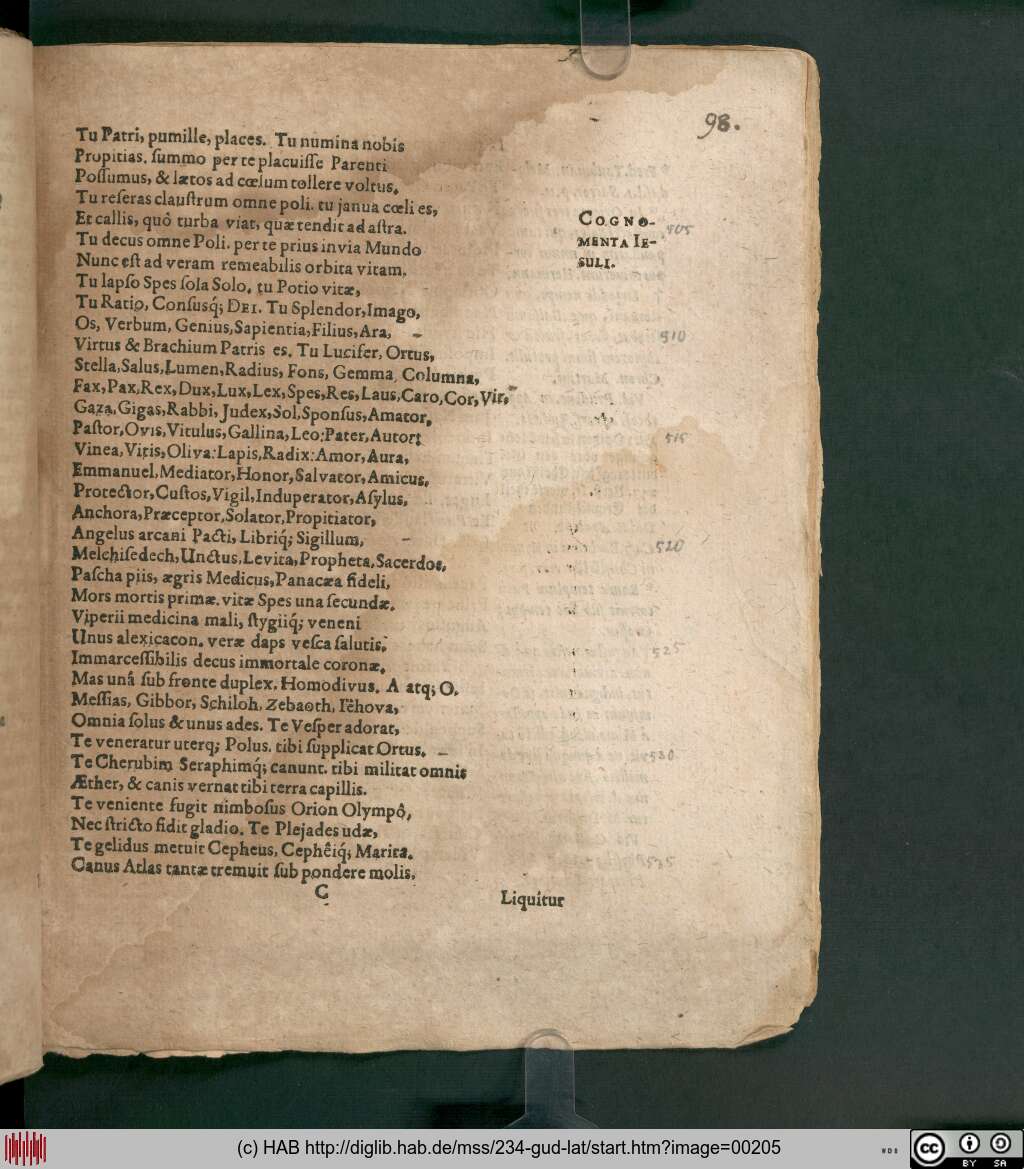 98.
Tu Patri, pumille, places. Tu numina nobis
Propitias. ſummo per te placuiſſe Parenti
Poſſumus, & lætos ad cœlum tollere voltus.
Tu reſeras clauſtrum omne poli. tu janua cœli es,
Et callis, quô turba viat, quæ tendit ad aſtra.
COGNO-
MENTA IE-
SULI.
505
Tu decus omne Poli. per te prius invia Mundo
Nunc eſt ad veram remeabilis orbita vitam.
Tu lapſo Spes ſola Solo. tu Potio vitæ,
Tu Ratio, Conſusq́; DEI. Tu Splendor, Imago,
Os, Verbum, Genius, Sapientia, Filius, Ara,
510
Virtus & Brachium Patris es. Tu Lucifer, Ortus,
Stella, Salus, Lumen, Radius, Fons, Gemma, Columna,
Fax, Pax, Rex, Dux, Lux, Lex, Spes, Res, Laus, Caro, Cor, Vir,
Gaza, Gigas, Rabbi, Judex, Sol, Sponſus, Amator,
Paſtor, Ovis, Vitulus, Gallina, Leo: Pater, Autor:
515
Vinea, Vitis, Oliva: Lapis, Radix: Amor, Aura,
Emmanuel, Mediator, Honor, Salvator, Amicus,
Protector, Cuſtos, Vigil, Induperator, Aſylus,
Anchora, Præceptor, Solator, Propitiator,
Angelus arcani Pacti, Libriq́; Sigillum,
520
Melchiſedech, Unctus, Levita, Propheta, Sacerdos,
Paſcha piis, ægris Medicus, Panacæa fideli,
Mors mortis primæ. vitæ Spes una ſecundæ.
Viperii medicina mali, ſtygiiq́; veneni
Unus alexicacon. veræ daps veſca ſalutis.
525
Immarceſſibilis decus immortale coronæ.
Mas unâ ſub fronte duplex. Homodivus. A atq; O.
Meſſias, Gibbor, Schiloh, Zebaoth, Iêhova,
Omnia ſolus & unus ades. Te Veſper adorat,
Te veneratur uterq; Polus. tibi ſupplicat Ortus.
530
Te Cherubim Seraphimq́; canunt. tibi militat omnis
Æther, & canis vernat tibi terra capillis.
Te veniente fugit nimboſus Orion Olympô,
Nec ſtricto fidit gladio. Te Plejades udæ,
Te gelidus metuit Cepheus, Cephêiq́; Marita.
535
Canus Atlas tantæ tremuit ſub pondere molis.
C
Liquitur
(c) HAB http://diglib.hab.de/mss/234-gud-lat/start.htm?image=00205
WDB
cc
BY SA